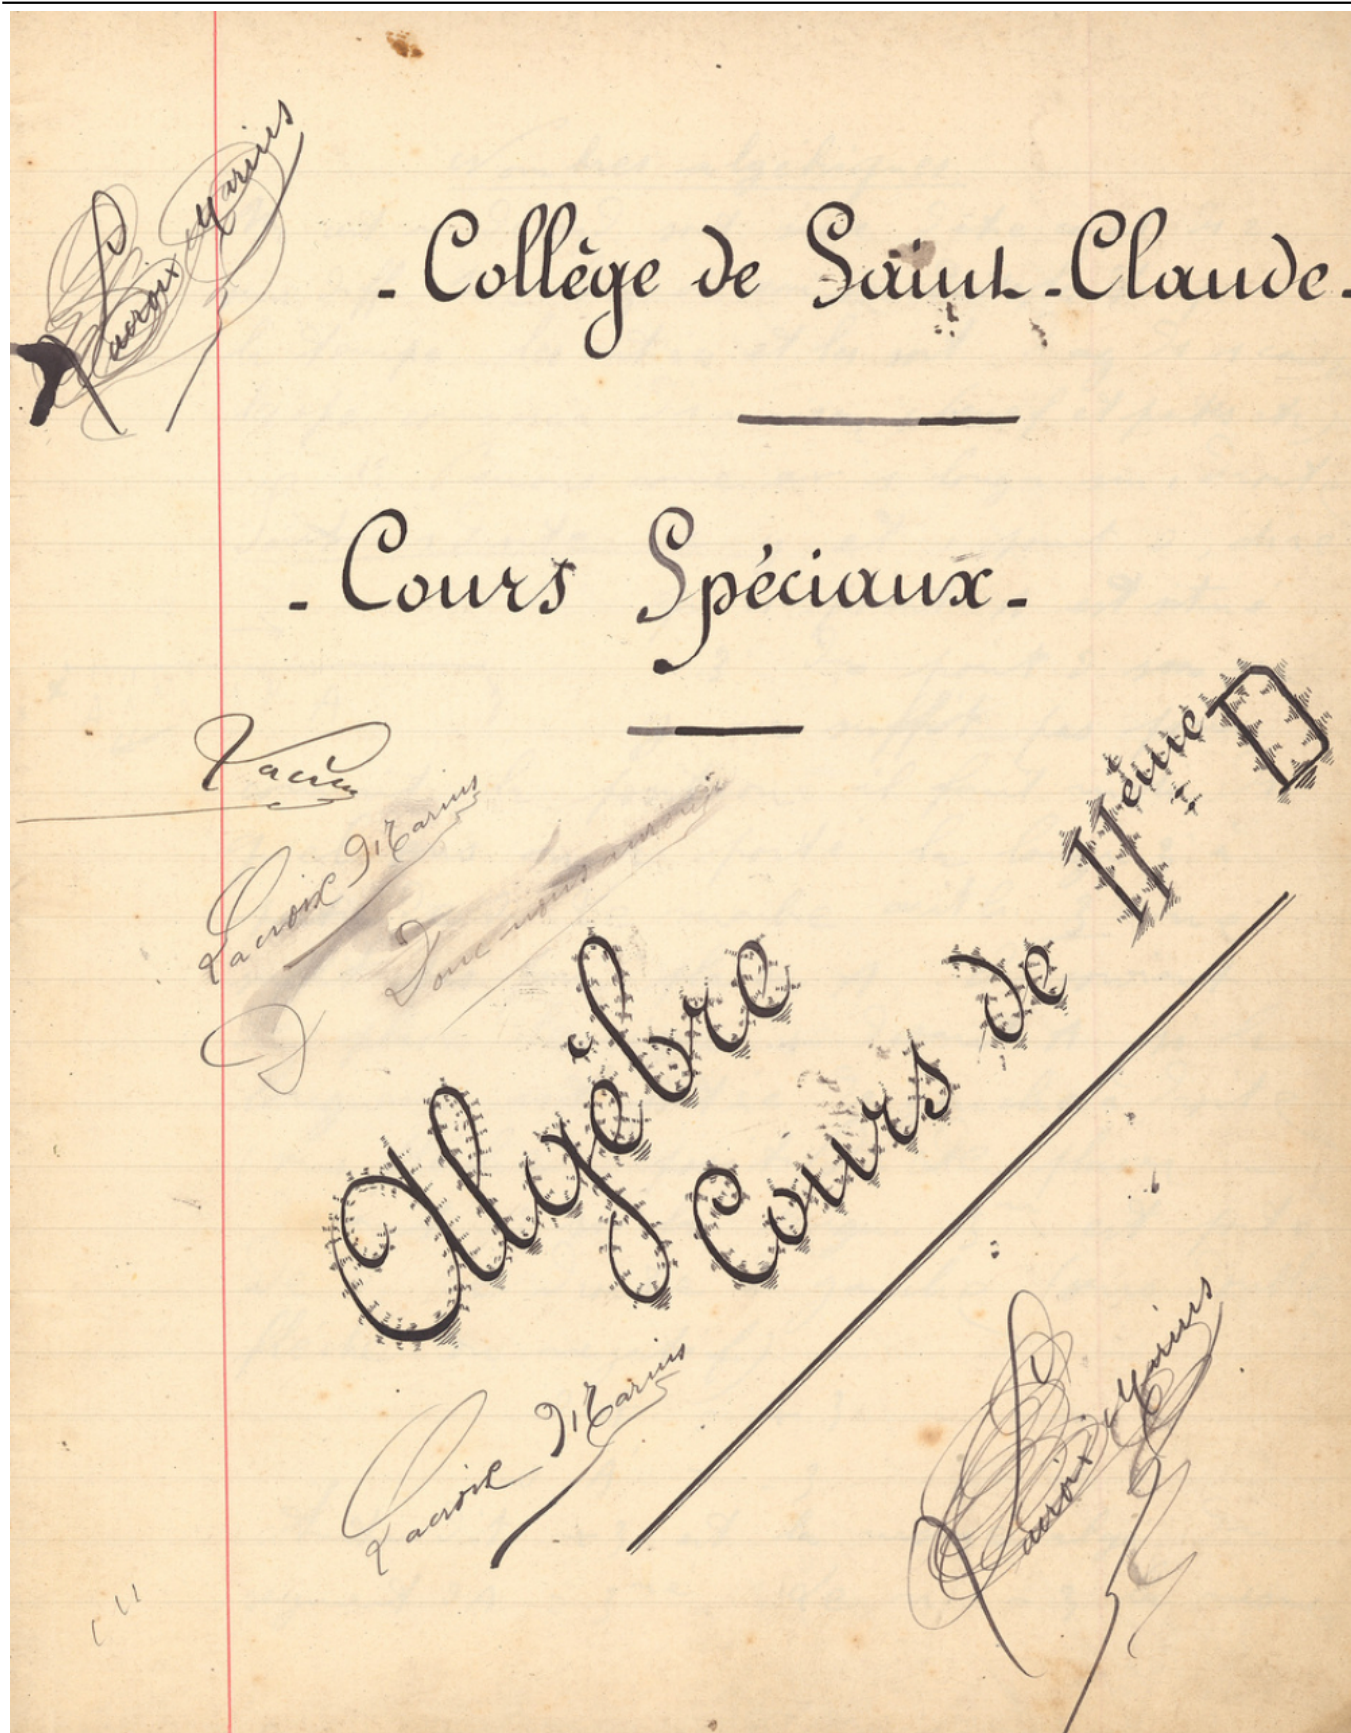 Lacroix Marius
- Collège de Saint-Claude -
- Cours Spéciaux -
Lacroix Marius
Donc nous aurons
Algèbre
Cours de IIème D
Lacroix Marius
Lacroix Marius